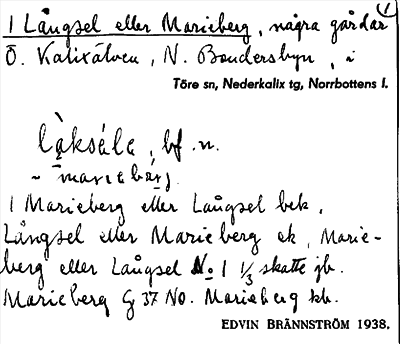 1 Långsel eller Marieberg, några gårdar 1
Ö. Kalixälven, N. Bondersbyn, i
Töre sn, Nederkalix tg, Norrbottens l.
låksele, bf. n.
~ mariebärj.
1 Marieberg eller Laŭgsel bek.
Långsel eller Marieberg ek, Marie-
berg eller Laŭgsel No 1 1/3 skatte jb.
Marieberg G 37 NO. Marieberg kb.
EDVIN BRÄNNSTRÖM 1938.